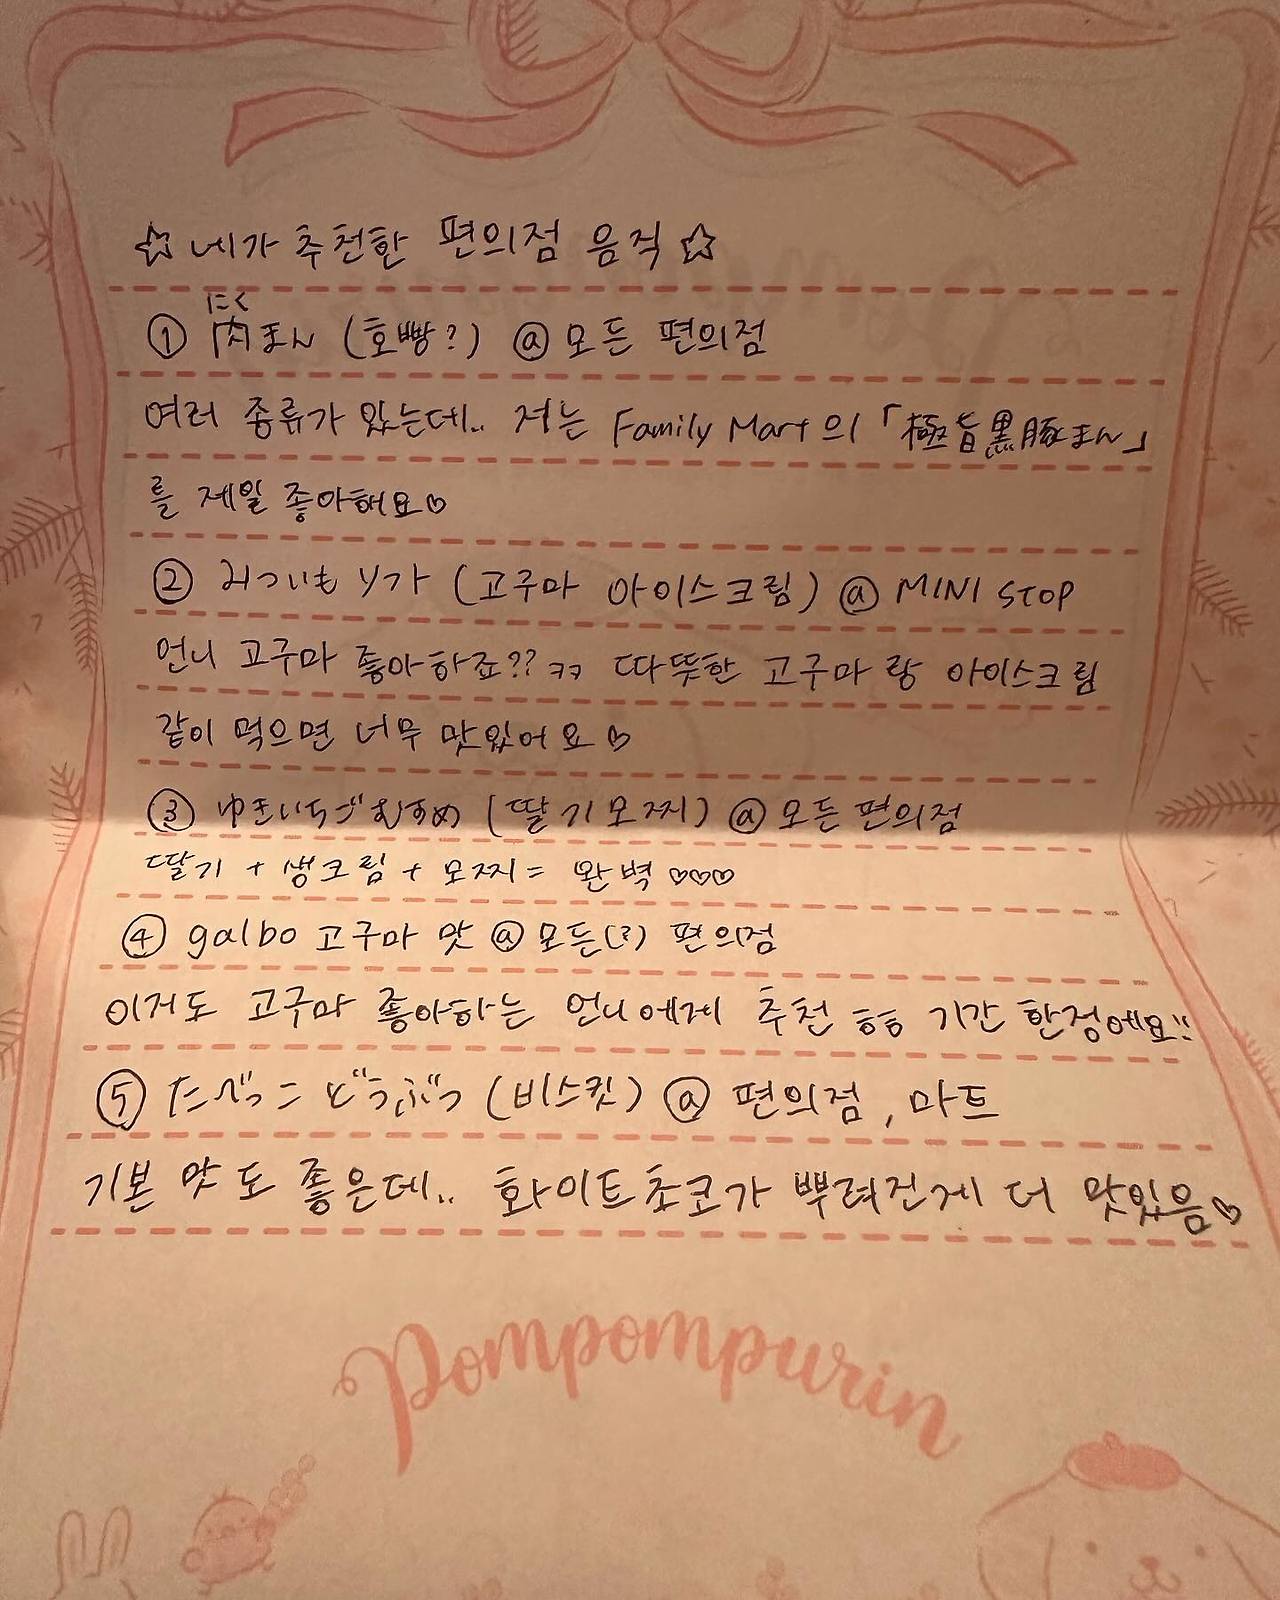 ☆ 네가 추천한 편의점 음직 ☆
にく
① 肉まん (호빵?) @ 모든 편의점
여러 종류가 있는데.. 저는 Family Mart 의 「極旨黒豚まん」
를 제일 좋아해요♡
② みついもソ가 (고구마 아이스크림) @ MINI STOP
언니 고구마 좋아하죠?? ㅋㅋ 따뜻한 고구마랑 아이스크림
같이 먹으면 너무 맛있어요♡
③ ゆきいちごむすめ (딸기모찌) @ 모든 편의점
딸기 + 생크림 + 모찌 = 완벽 ♡♡♡
④ galbo 고구마 맛 @ 모든(?) 편의점
이거도 고구마 좋아하는 언니에게 추천 ㅎㅎ 기간 한정에요!!
⑤ たべっこ どうぶつ (비스킷) @ 편의점, 마트
기본 맛도 좋은데.. 화이트초코가 뿌려진게 더 맛있음♡
Pompompurin